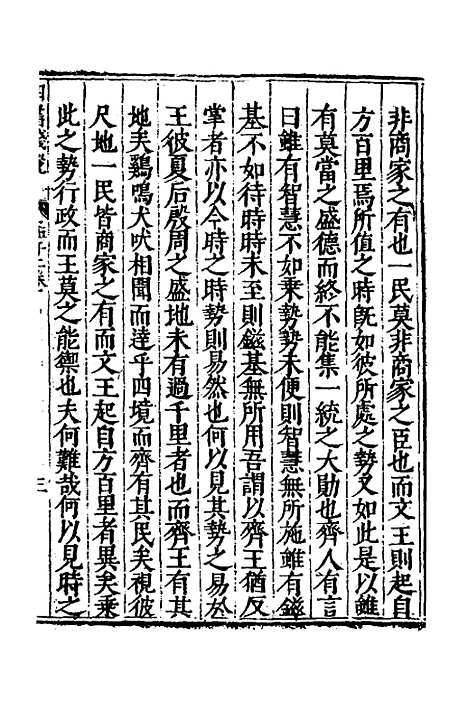 非商家之有也一民莫非商家之臣也而文王則起自
方百里焉所值之時旣如彼所處之勢又如此是以雖
有莫當之盛德而終不能集一統之大勛也齊人有言
曰雖有智慧不如乗勢勢未便則智慧無所施雖有鎡
基不如待時時未至則鎡基無所用吾謂以齊王猶反
掌者亦以今時之時勢則易然也何以見其勢之易於
王彼夏后殷周之盛地未有過千里者也而齊王有其
地矣鷄鳴犬吠相聞而達乎四境而齊有其民矣視彼
尺地一民皆商家之有而文王起自方百里者異矣乗
此之勢行政而王莫之能禦也夫何難哉何以見時之
三